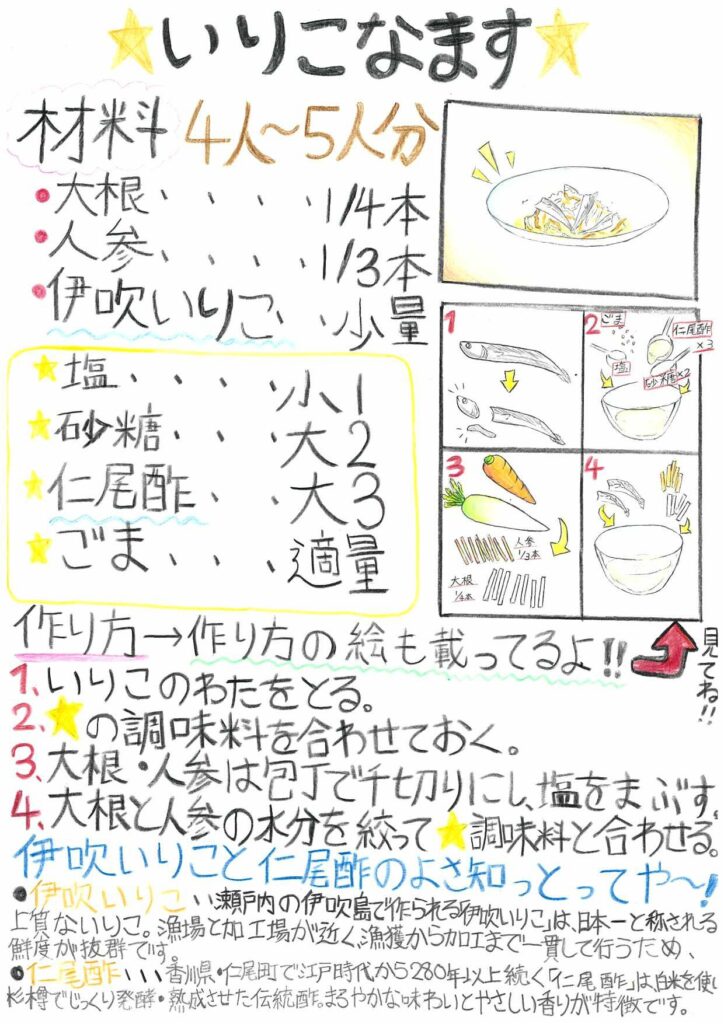 いりこなます
材料 4人〜5人分
大根、、、、1/4本
人参、、、、1/3本
伊吹いりこ、、少量
塩、、、、小1
砂糖、、、大2
仁尾酢、、大3
ごま、、、適量
1
2
ごま
塩
仁尾酢×3
砂糖×2
3
人参
1/3本
大根
1/4本
4
作り方→作り方の絵も載ってるよ!!
見てね!!
1、いりこのわたをとる。
2、★の調味料を合わせておく。
3、大根・人参は包丁で千切りにし、塩をまぶす。
4、大根と人参の水分を絞って★調味料と合わせる。
伊吹いりこと仁尾酢のよさ知っとってや〜!
●伊吹いりこ、、瀬戸内の伊吹島で作られる「伊吹いりこ」は、日本一と称される
上質ないりこ。漁場と加工場が近く、漁獲から加工まで一貫して行うため、
鮮度が抜群です。
●仁尾酢、、、香川県・仁尾町で江戸時代から280年以上続く「仁尾酢」は、白米を使い
杉樽でじっくり発酵・熟成させた伝統酢。まろやかな味わいとやさしい香りが特徴です。